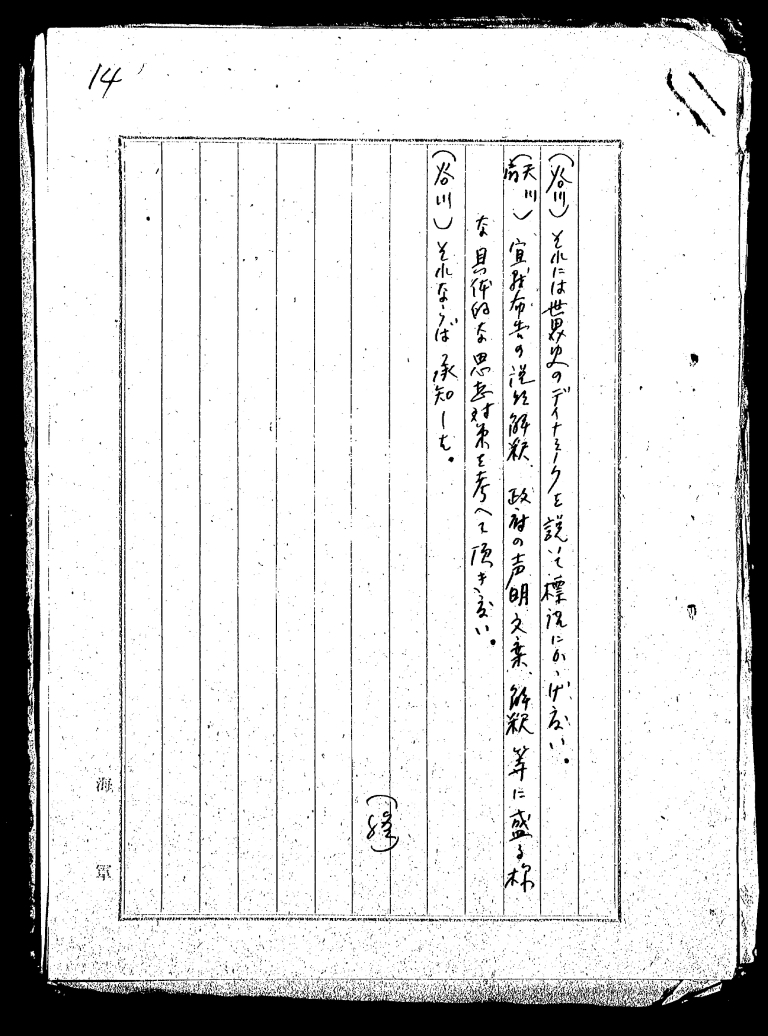 14
(谷川)それには世界史のディナミークを説いて標語にかゝげ度い。
(天川)宣戦布告の説明解釈、政府の声明文案、解釈等に盛る様
な具体的な思想対策を考へて頂き度い。
(谷川)それならば承知した。
(終)
海軍